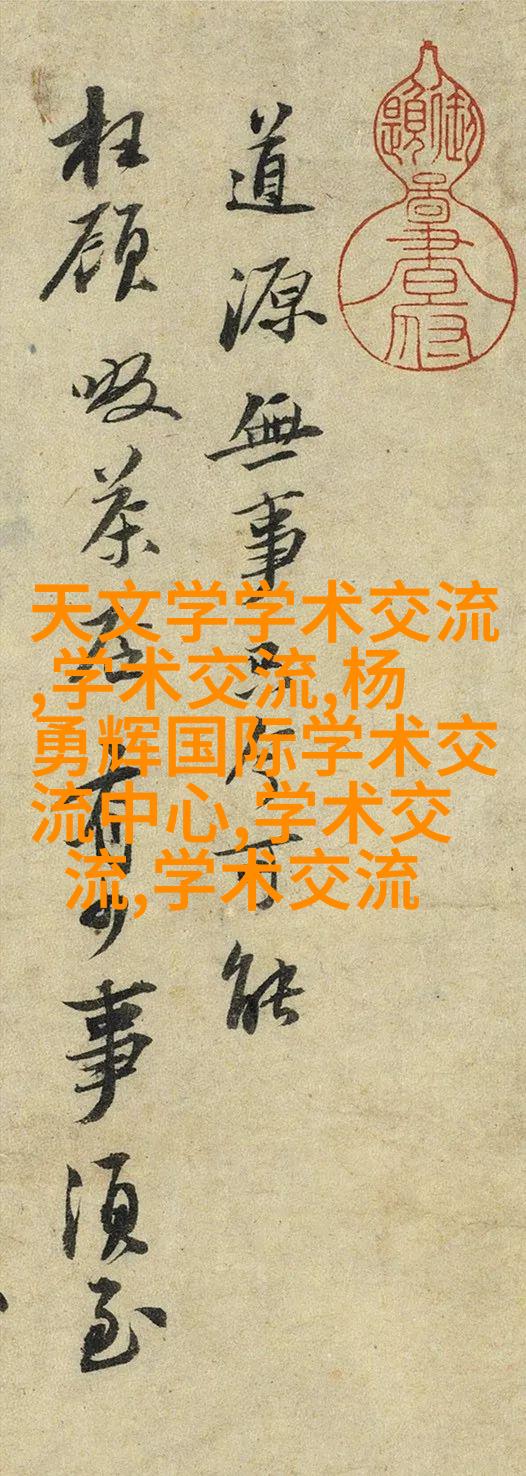 道源無事只今可能
枉顧啜茶否有少事須至
天文学学术交流
,学术交流,杨
勇辉国际学术交
流中心,学术交
流,学术交流